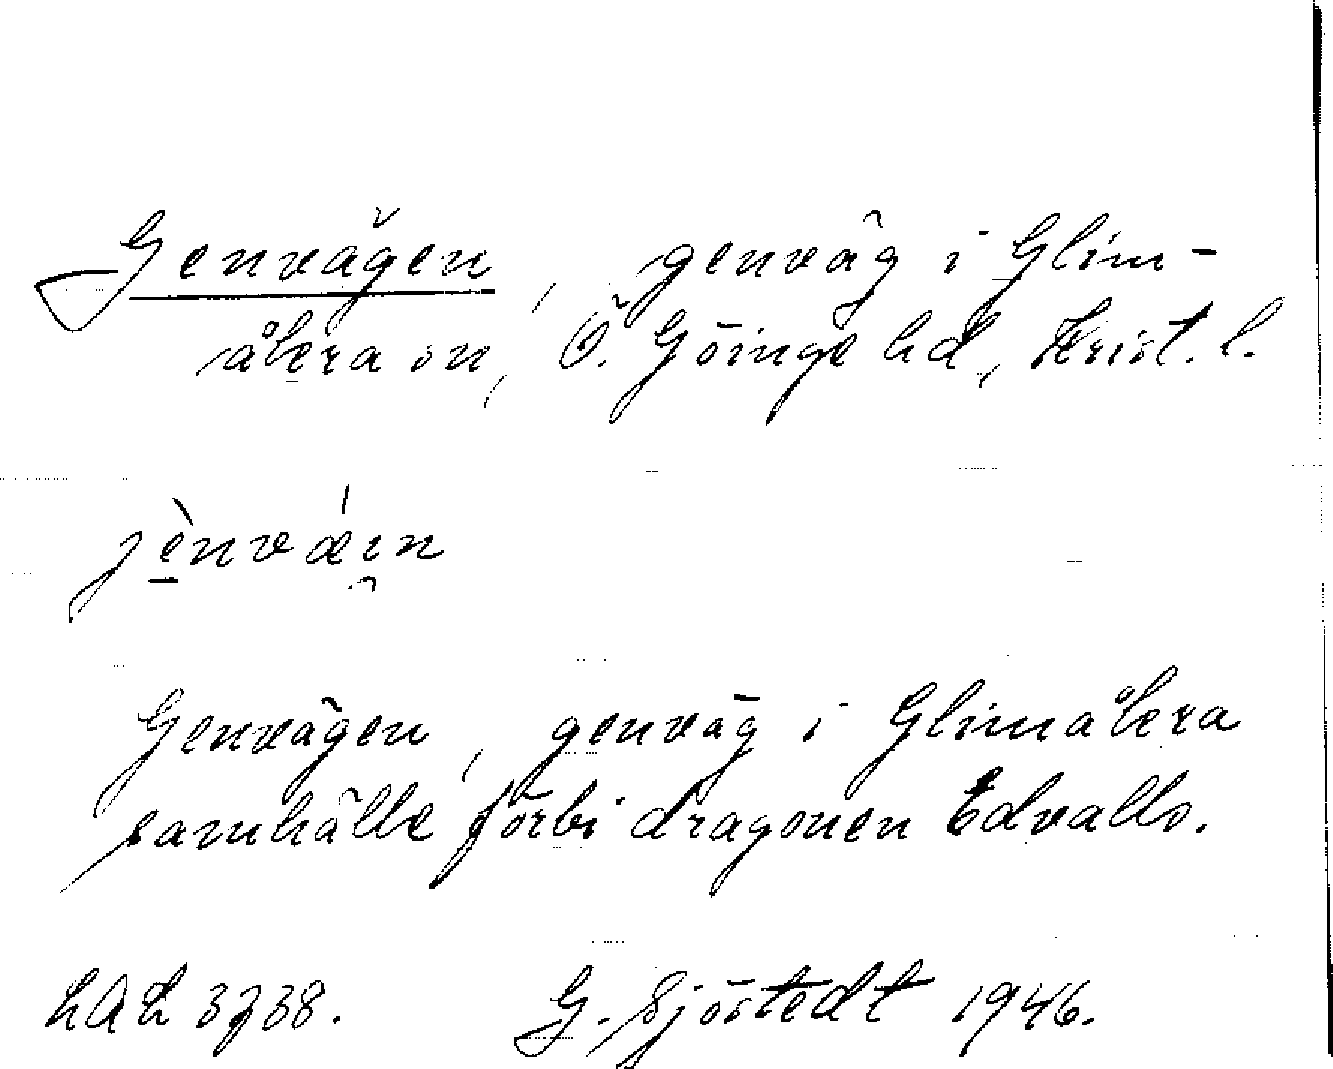 Genvägen, genväg i Glim-
åkra sn, Ö. Göinge hd, Krist. l.
jènvǽin
Genvägen, genväg i Glimåkra
samhälle förbi dragonen Edvalls.
LAL 3738. G. Sjöstedt 1946.